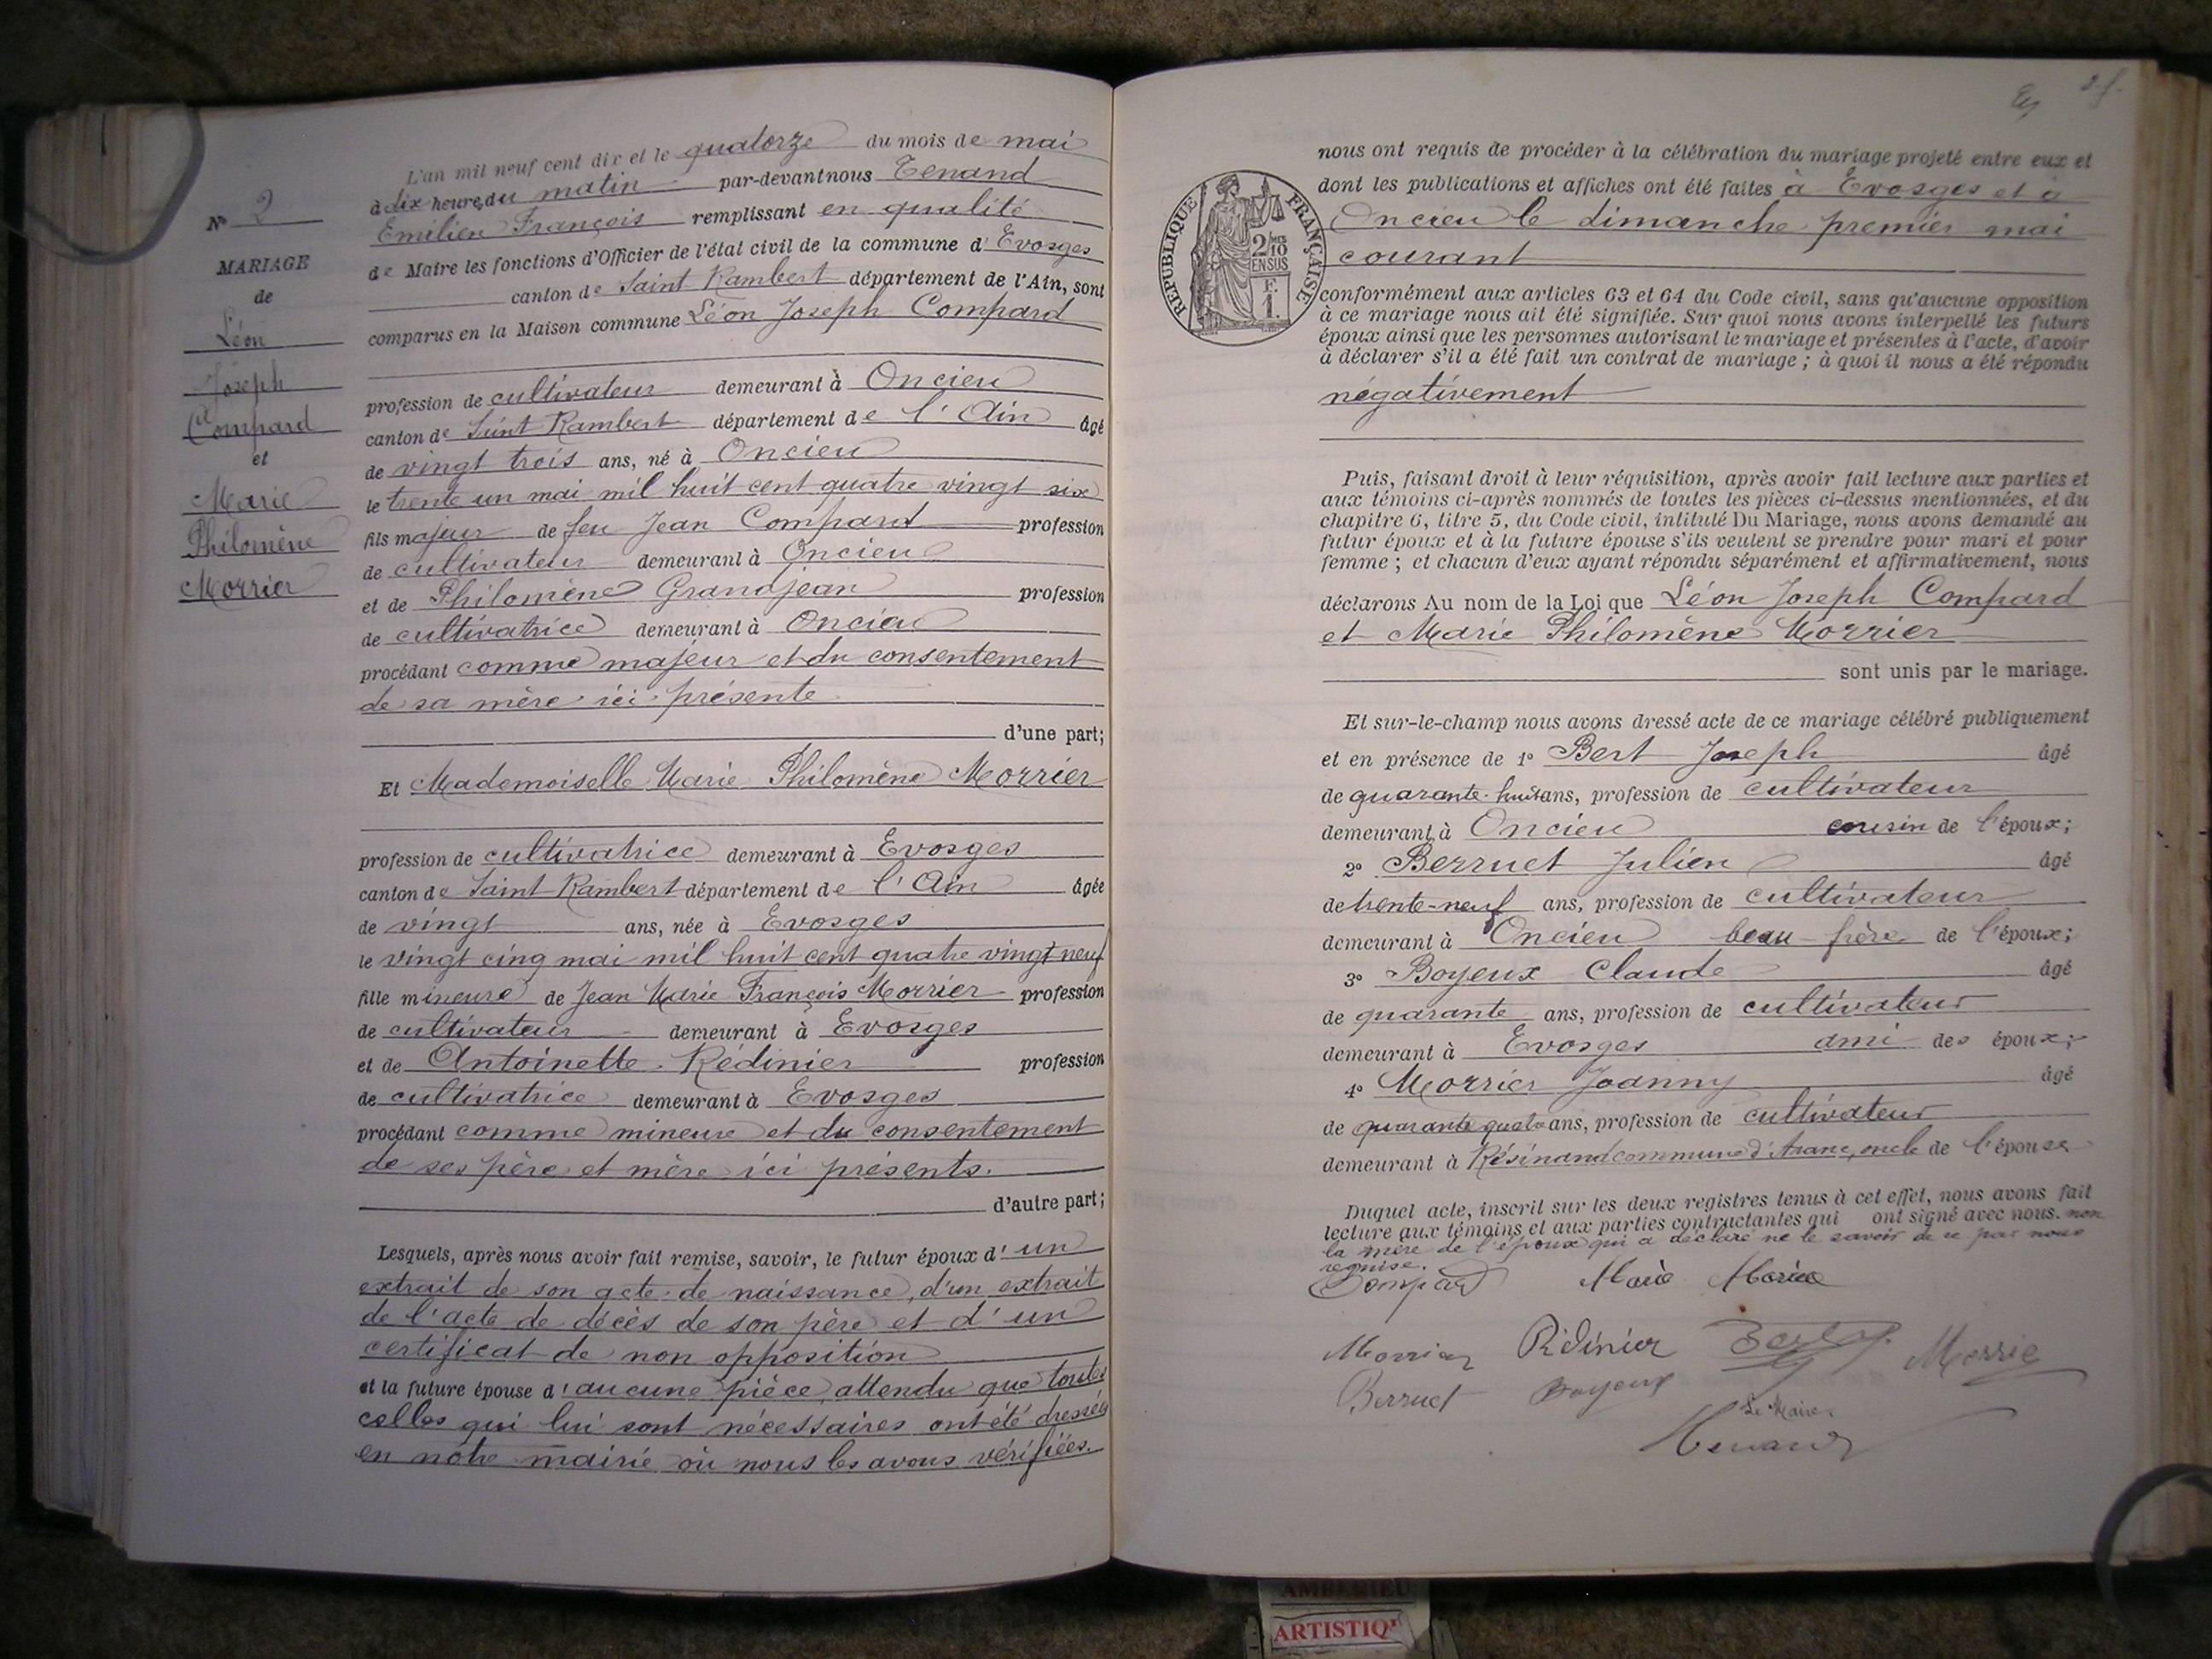 N° 2
MARIAGE
de
Léon
Joseph
Compard
et
Marie
Philomène
Morrier
L'an mil neuf cent dix et le quatorze du mois de mai
à dix heures du matin par-devant nous Tenand
Emilien François remplissant en qualité
de Maire les fonctions d'Officier de l'état civil de la commune d'Evosges
canton de Saint Rambert département de l'Ain, sont
comparus en la Maison commune Léon Joseph Compard
profession de cultivateur demeurant à Oncieu
canton de Saint Rambert département de l'Ain âgé
de vingt trois ans, né à Oncieu
le trente un mai mil huit cent quatre vingt six
fils majeur de feu Jean Compard profession
de cultivateur demeurant à Oncieu
et de Philomène Grandjean profession
de cultivatrice demeurant à Oncieu
procédant comme majeur et du consentement
de sa mère ici présente
d'une part;
Et Mademoiselle Marie Philomène Morrier
profession de cultivatrice demeurant à Evosges
canton de Saint Rambert département de l'Ain âgée
de vingt ans, née à Evosges
le vingt cinq mai mil huit cent quatre vingt neuf
fille mineure de Jean Marie François Morrier profession
de cultivateur demeurant à Evosges
et de Antoinette Rédinier profession
de cultivatrice demeurant à Evosges
procédant comme mineure et du consentement
de ses père et mère ici présents.
d'autre part;
Lesquels, après nous avoir fait remise, savoir, le futur époux d'un
extrait de son acte de naissance, d'un extrait
de l'acte de décès de son père et d'un
certificat de non opposition
et la future épouse d'aucune pièce, attendu que toutes
celles qui lui sont nécessaires ont été dressées
en notre mairie où nous les avons vérifiées.
RÉPUBLIQUE FRANÇAISE
2/10
EN SUS
F.
1.
nous ont requis de procéder à la célébration du mariage projeté entre eux et
dont les publications et affiches ont été faites à Evosges et à
Oncieu le dimanche premier mai
courant
conformément aux articles 63 et 64 du Code civil, sans qu'aucune opposition
à ce mariage nous ait été signifiée. Sur quoi nous avons interpellé les futurs
époux ainsi que les personnes autorisant le mariage et présentes à l'acte, d'avoir
à déclarer s'il a été fait un contrat de mariage; à quoi il nous a été répondu
négativement
Puis, faisant droit à leur réquisition, après avoir fait lecture aux parties et
aux témoins ci-après nommés de toutes les pièces ci-dessus mentionnées, et du
chapitre 6, titre 5, du Code civil, intitulé Du Mariage, nous avons demandé au
futur époux et à la future épouse s'ils veulent se prendre pour mari et pour
femme; et chacun d'eux ayant répondu séparément et affirmativement, nous
déclarons Au nom de la Loi que Léon Joseph Compard
et Marie Philomène Morrier
sont unis par le mariage.
Et sur-le-champ nous avons dressé acte de ce mariage célébré publiquement
et en présence de 1° Bert Joseph âgé
de quarante-huit ans, profession de cultivateur
demeurant à Oncieu cousin de l'époux;
2° Berruet Julien âgé
de trente-neuf ans, profession de cultivateur
demeurant à Oncieu beau-frère de l'époux;
3° Boyeux Claude âgé
de quarante ans, profession de cultivateur
demeurant à Evosges ami des époux;
4° Morrier Joanny âgé
de quarante quatre ans, profession de cultivateur
demeurant à Résinand commune d'Aranc, oncle de l'épouse
Duquel acte, inscrit sur les deux registres tenus à cet effet, nous avons fait
lecture aux témoins et aux parties contractantes qui ont signé avec nous. non
la mère de l'époux qui a déclaré ne le savoir de ce par nous
requise.
Compard Marie Morier
Morrier Rédinier Bert J. Morrie
Berruet Boyeux
Le Maire
Tenand
AMBERIEU
ARTISTIQ